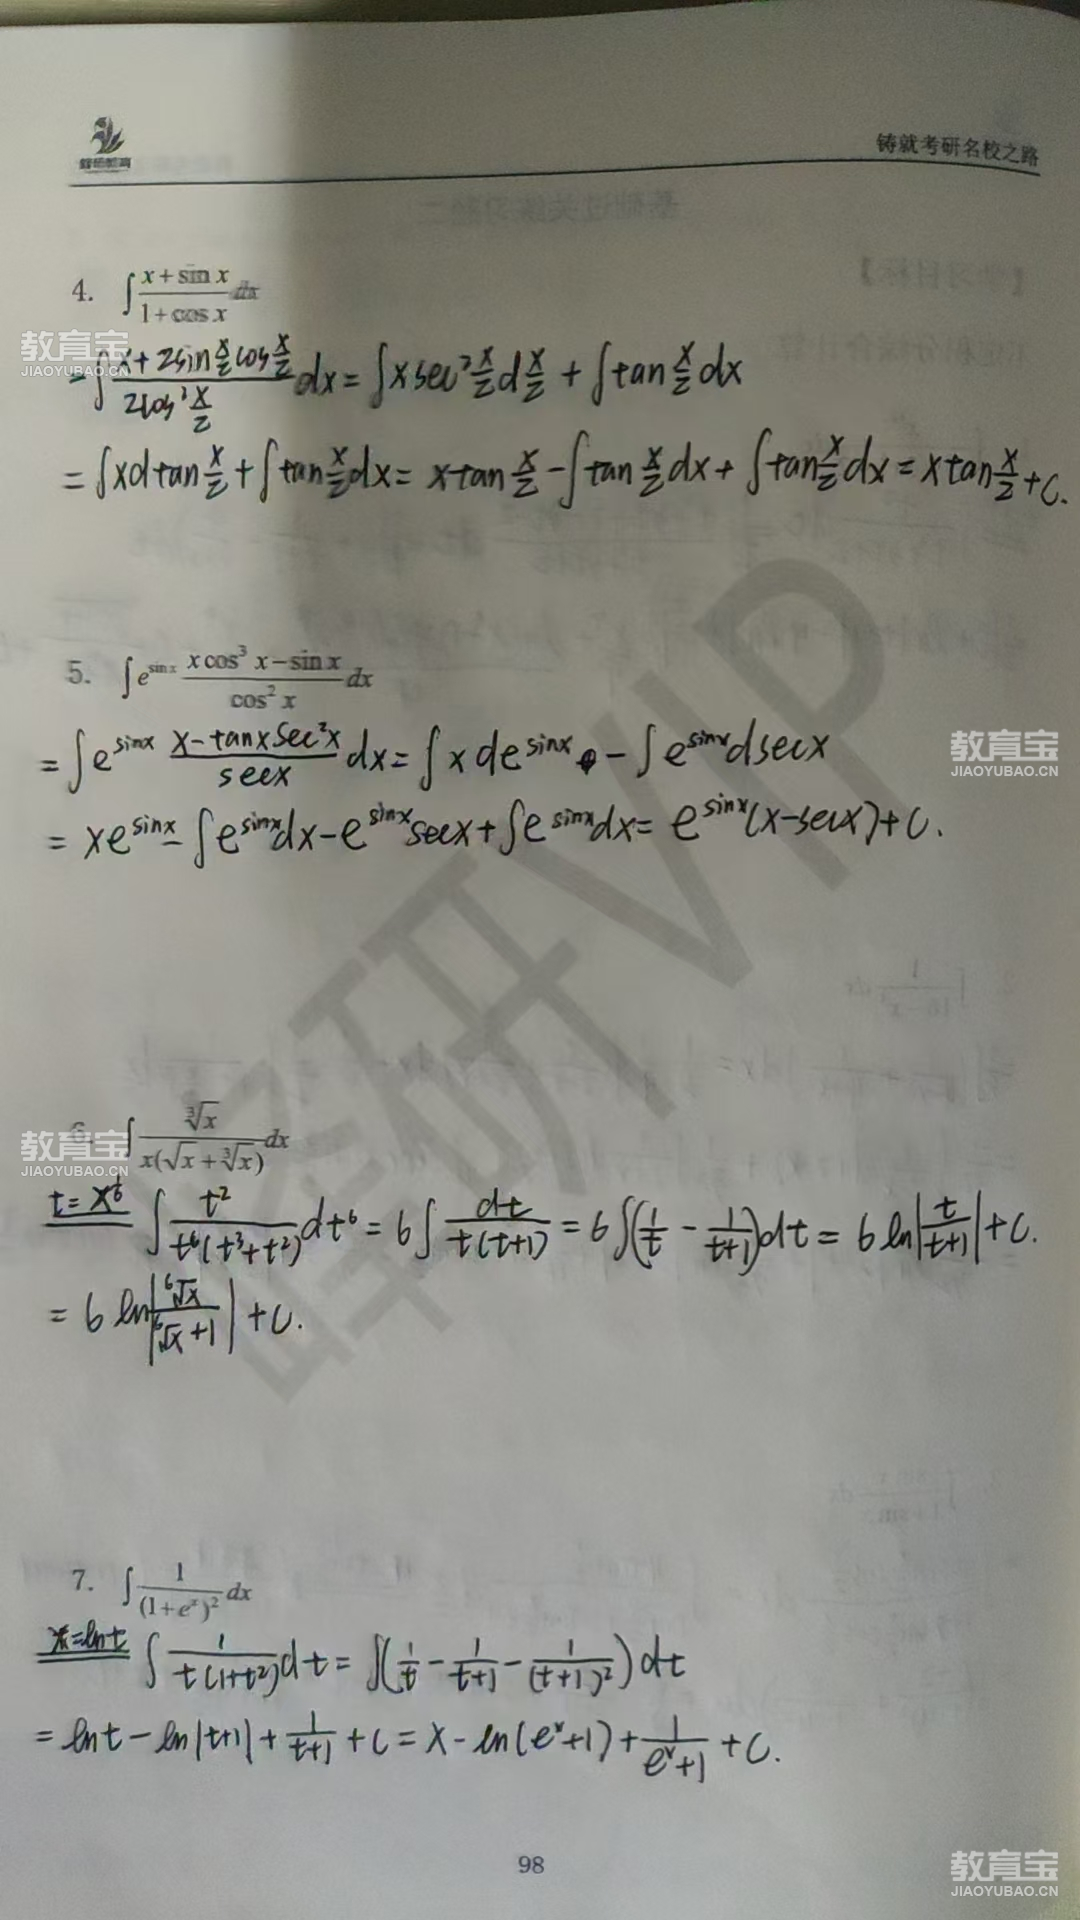 铸就考研名校之路
4. ∫ (x + sin x)/(1 + cos x) dx
= ∫ (x + 2sin x/2 cos x/2)/(2cos² x/2) dx = ∫ x sec² x/2 d x/2 + ∫ tan x/2 dx
= ∫ x d tan x/2 + ∫ tan x/2 dx = x tan x/2 − ∫ tan x/2 dx + ∫ tan x/2 dx = x tan x/2 + C.
5. ∫ e^(sin x) (x cos³ x − sin x)/(cos² x) dx
= ∫ e^(sinx) (x − tanx sec²x)/(secx) dx = ∫ x de^(sinx) − ∫ e^(sinx) dsecx
= xe^(sinx) − ∫ e^(sinx) dx − e^(sinx) secx + ∫ e^(sinx) dx = e^(sinx) (x − secx) + C.
教育宝
JIAOYUBAO.CN
教育宝
JIAOYUBAO.CN
6. ∫ ∛x/(x(√x + ∛x)) dx
教育宝
JIAOYUBAO.CN
t = x^(1/6) ∫ t²/(t⁶(t³+t²)) dt⁶ = 6∫ dt/(t(t+1)) = 6∫(1/t − 1/(t+1))dt = 6 ln|t/(t+1)| + C.
= 6 ln|⁶√x/(⁶√x + 1)| + C.
7. ∫ 1/(1 + e^x)² dx
x = ln t ∫ 1/(t(1+t²)) dt = ∫(1/t − 1/(t+1) − 1/(t+1)²) dt
= ln t − ln|t+1| + 1/(t+1) + C = x − ln(e^x + 1) + 1/(e^x + 1) + C.
98
教育宝
JIAOYUBAO.CN
研VIP